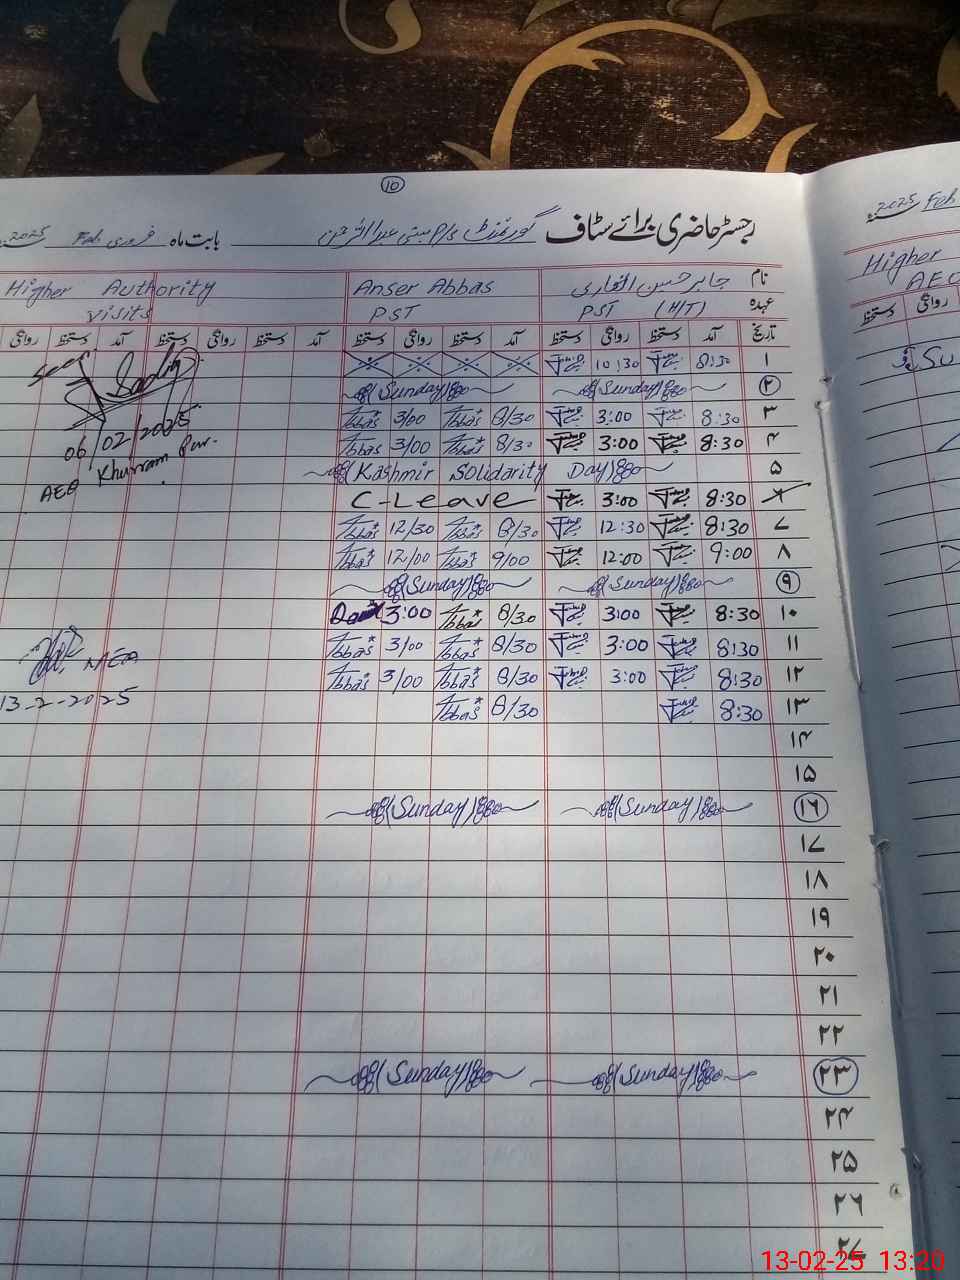 10
رجسٹر حاضری برائے سٹاف گورنمنٹ P/S بستی عبدالرحمن بابت ماہ فروری Feb 2025
2025 Feb
نام جابر حسن انصاری Anser Abbas Higher Authority
عہدہ PST (H/T) PST visits
Higher
AEO
تاریخ آمد دستخط روانگی دستخط آمد دستخط روانگی دستخط آمد دستخط روانگی دستخط آمد دستخط روانگی
دستخط روانگی
۱ 8:30 10:30
۲ (Sunday) (Sunday)
۳ 8:30 3:00 8/30 Abbas 3/00 Abbas
۴ 8:30 3:00 8/30 Abbas 3/00 Abbas
06/02/2025
۵ (Kashmir Solidarity Day)
AEO Khurram
8:30 3:00 C-Leave
۷ 8:30 12:30 8/30 Abbas 12/30 Abbas
۸ 9:00 12:00 9/00 Abbas 12/00 Abbas
۹ (Sunday) (Sunday)
۱۰ 8:30 3:00 8/30 Abbas 3:00
۱۱ 8:30 3:00 8/30 Abbas 3/00 Abbas
MEA
۱۲ 8:30 3:00 8/30 Abbas 3/00 Abbas
13-2-2025
۱۳ 8:30 8/30 Abbas
۱۴
۱۵
۱۶ (Sunday) (Sunday)
۱۷
۱۸
۱۹
۲۰
۲۱
۲۲
۲۳ (Sunday) (Sunday)
۲۴
۲۵
۲۶
۲۷
13-02-25 13:20